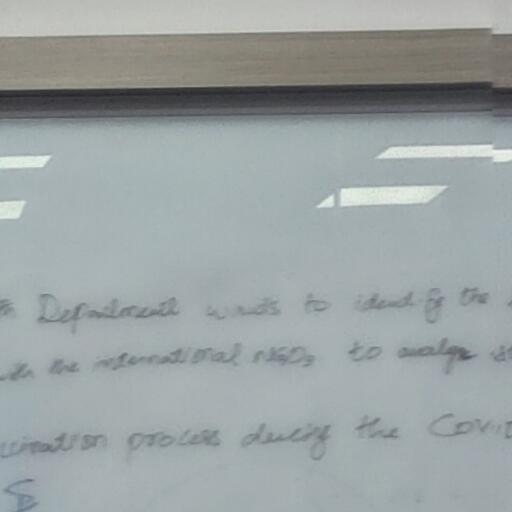 Department wants to identify the
with the international NGOs to analyze
process during the Covid